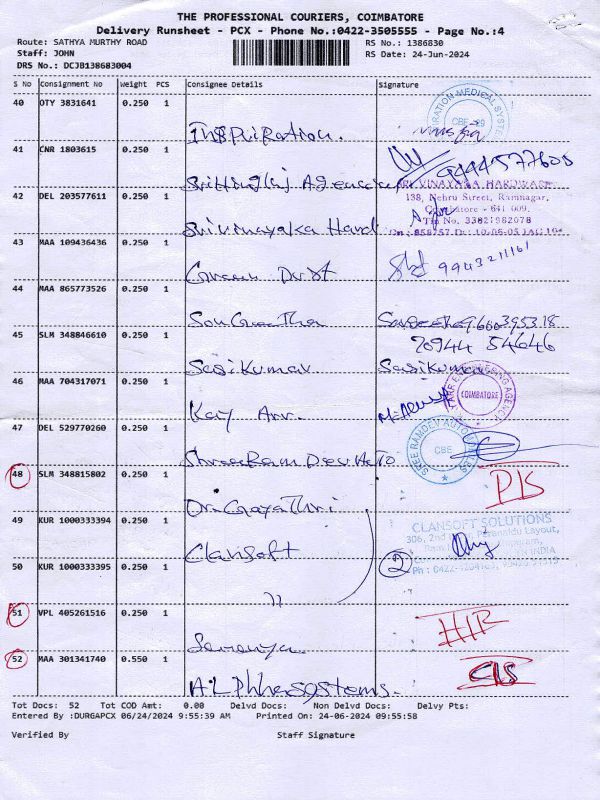 THE PROFESSIONAL COURIERS, COIMBATORE
Delivery Runsheet - PCX - Phone No.:0422-3505555 - Page No.:4
Route: SATHYA MURTHY ROAD RS No.: 1386830
Staff: JOHN RS Date: 24-Jun-2024
DRS No.: DCJB138683004
S No Consignment No Weight PCS Consignee Details Signature
40 OTY 3831641 0.250 1
Inspiration.
41 CNR 1803615 0.250 1
9444577600
Agencies
VINAYAGA HARDWARE
138, Nehru Street, Ramnagar,
Coimbatore - 641 009.
42 DEL 203577611 0.250 1
Tin No. 33821982078
Srivinayaka Hard
43 MAA 109436436 0.250 1
9943211161
Green Dust
44 MAA 865773526 0.250 1
SonGeetha
45 SLM 348846610 0.250 1
70944 54646
Sasikumar Sasikumar
46 MAA 704317071 0.250 1
COIMBATORE
Kay Arr.
47 DEL 529770260 0.250 1
SREE RAMDEV AUTOMOBILES
CBE
ShreeRam Dev Auto
48 SLM 348815802 0.250 1
Dr. Gayathri
49 KUR 1000333394 0.250 1
CLANSOFT SOLUTIONS
Clansoft
50 KUR 1000333395 0.250 1
2
"
51 VPL 405261516 0.250 1
Saranya
52 MAA 301341740 0.550 1
ALPhhasystems.
Tot Docs: 52 Tot COD Amt: 0.00 Delvd Docs: Non Delvd Docs: Delvy Pts:
Entered By :DURGAPCX 06/24/2024 9:55:39 AM Printed On: 24-06-2024 09:55:58
Verified By Staff Signature